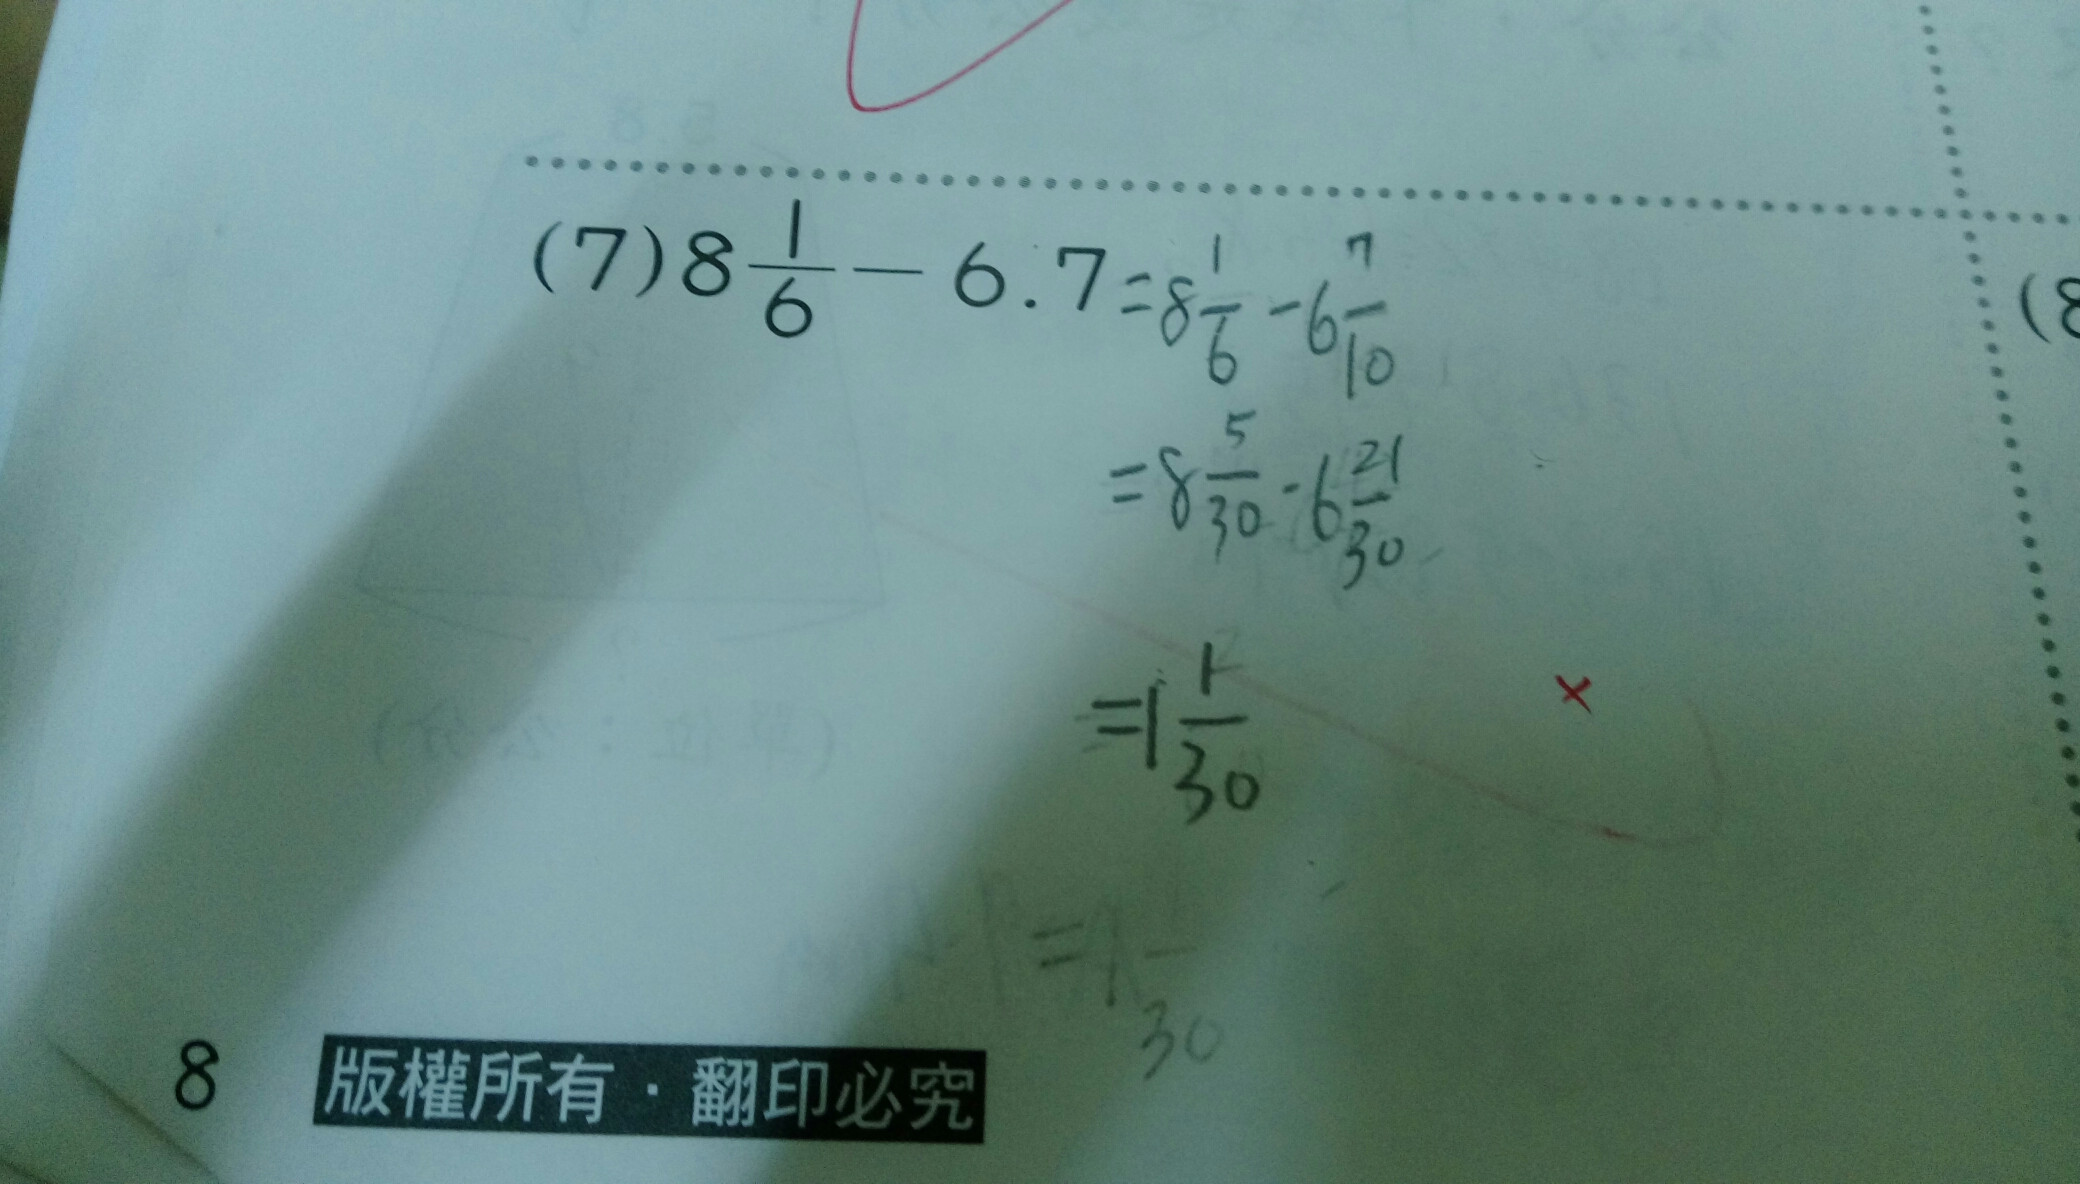 (7) 8 1/6 − 6.7 = 8 1/6 - 6 7/10
= 8 5/30 - 6 21/30
= 1 1/30
= 1 /30
8 版權所有·翻印必究
(8